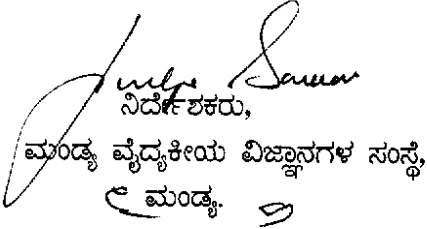 ನಿರ್ದೇಶಕರು,
ಮಂಡ್ಯ ವೈದ್ಯಕೀಯ ವಿಜ್ಞಾನಗಳ ಸಂಸ್ಥೆ,
ಮಂಡ್ಯ.